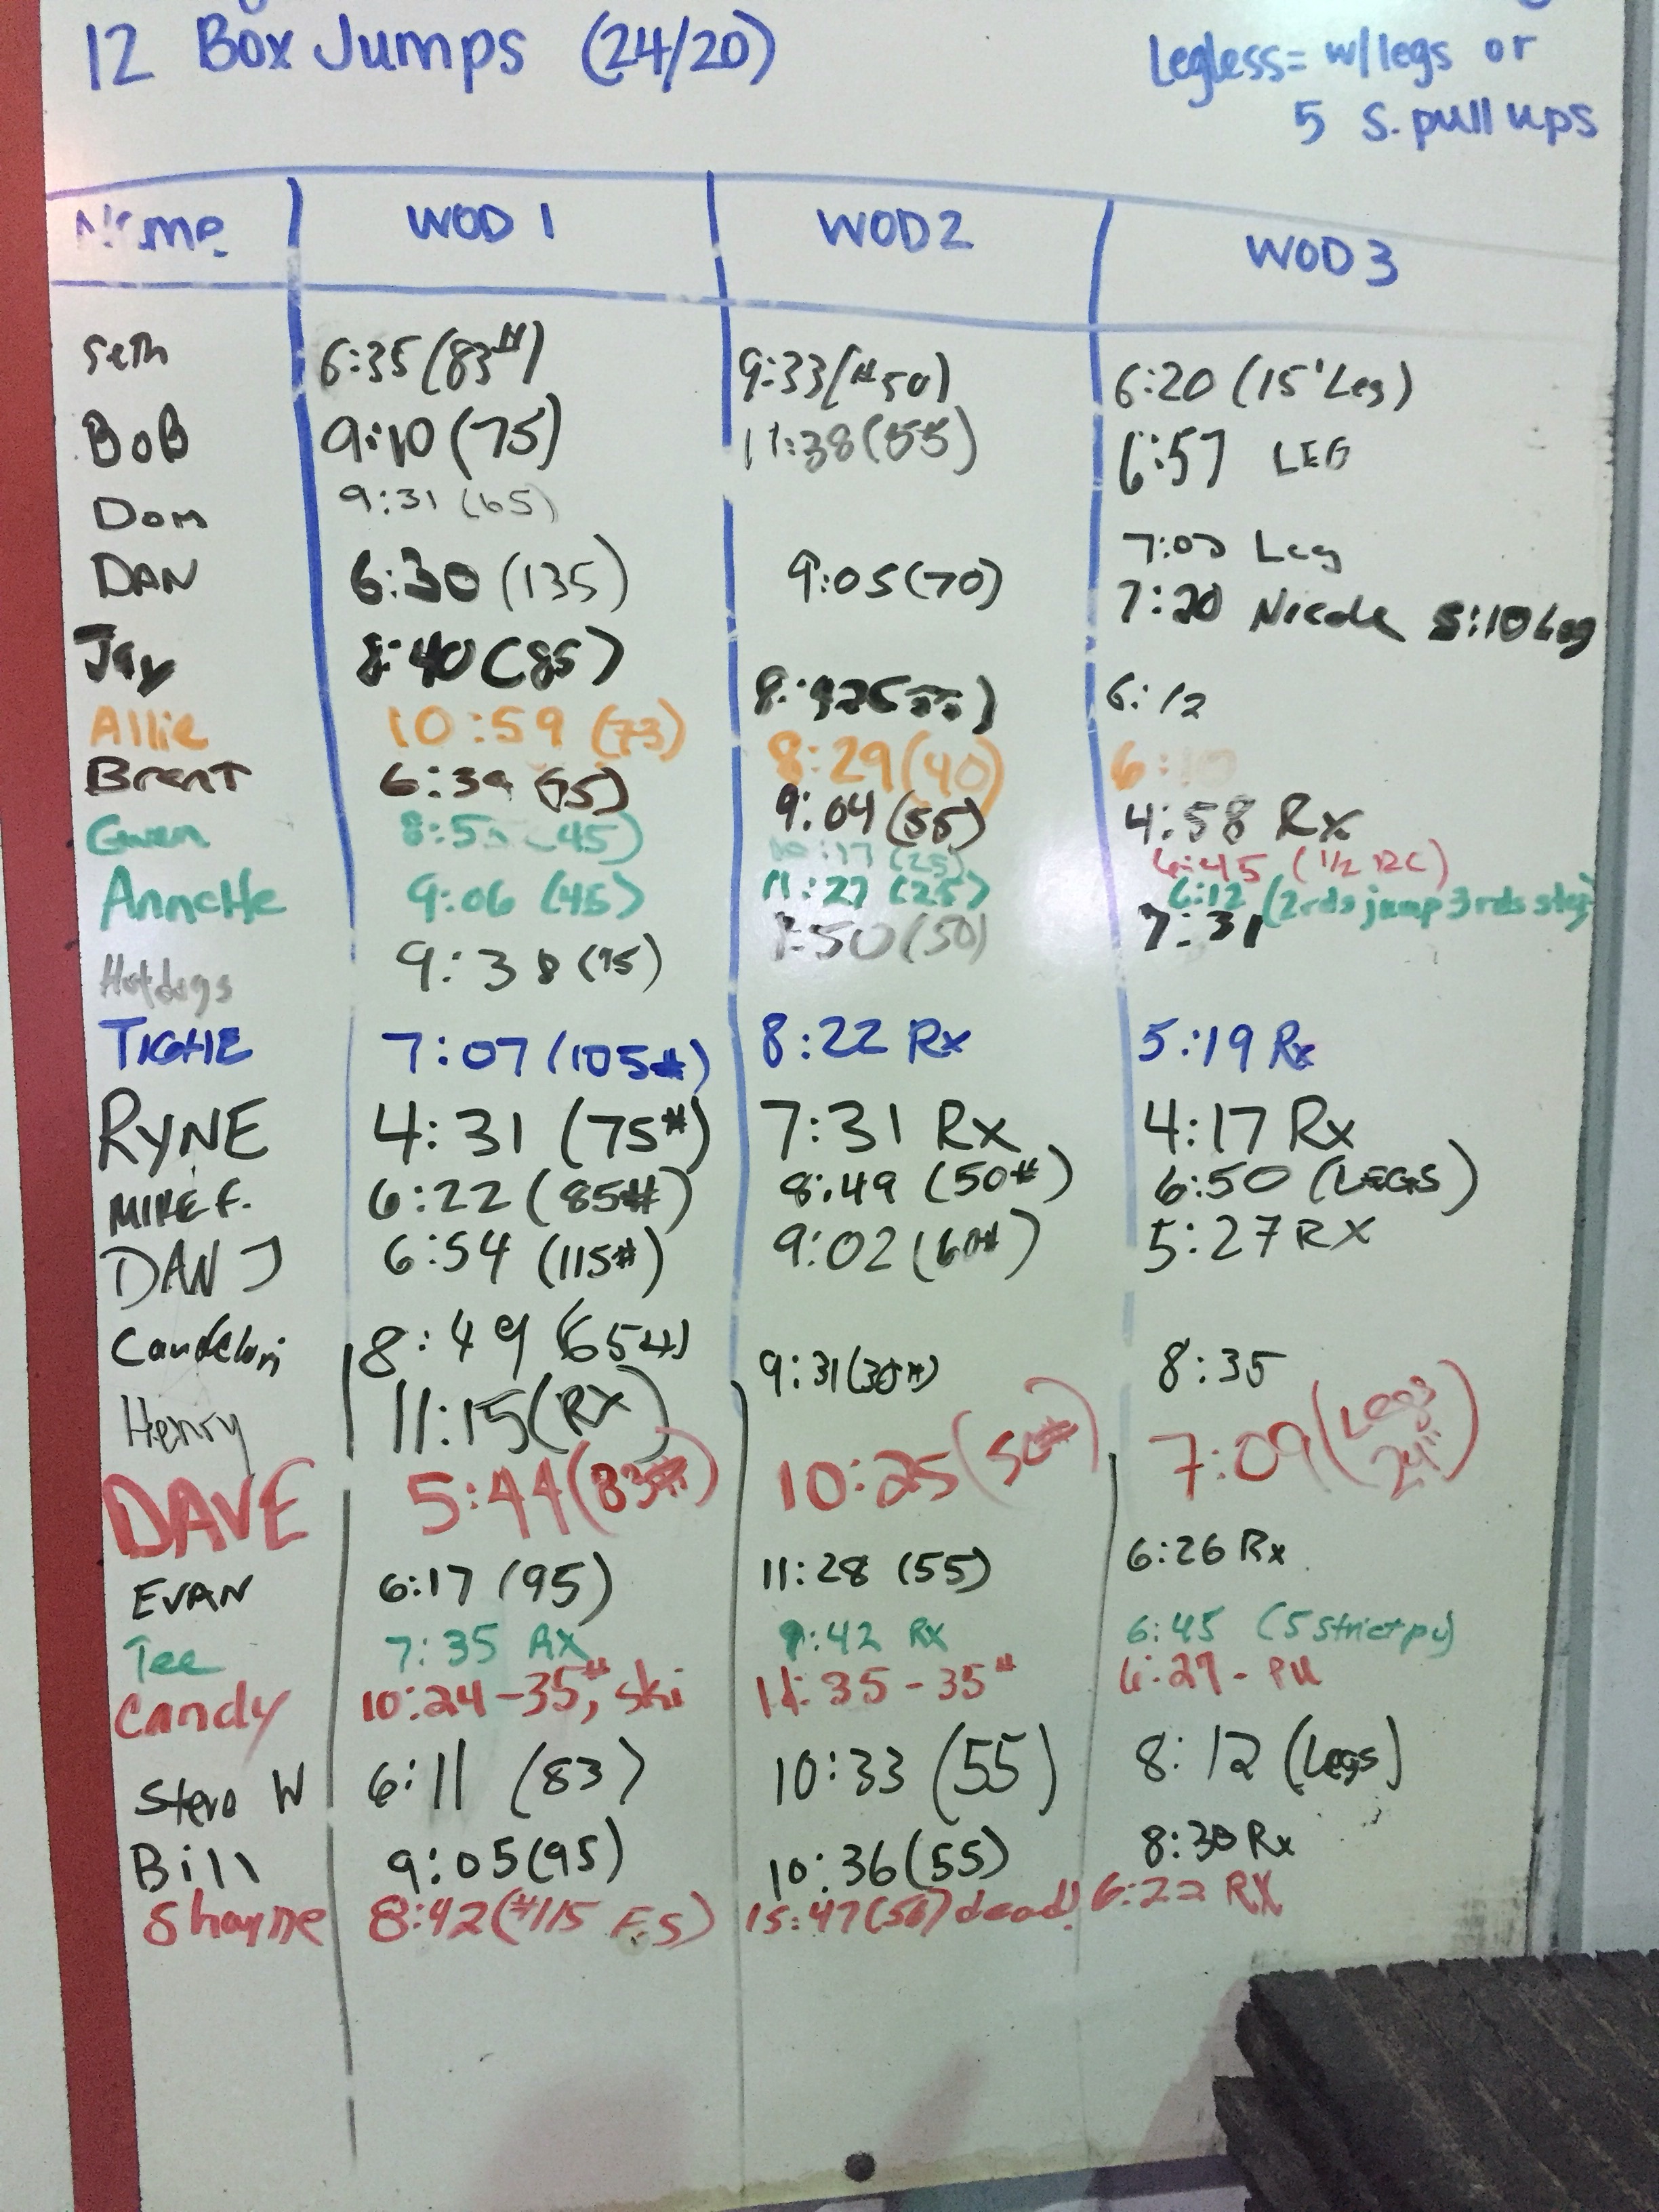 12 Box Jumps (24/20)
Legless = w/legs or
5 S. pull ups
Name WOD 1 WOD 2 WOD 3
Seth 6:35 (83#) 9:33 (#50) 6:20 (15' Leg)
BOB 9:10 (75) 11:38 (55) 6:57 LEG
Dom 9:31 (65)
7:00 Leg
DAN 6:30 (135) 9:05 (70) 7:20 Nicole 5:10 Leg
Jay 8:40 (85) 6:12
Allie 10:59 (73) 8:29 (40) 6:
Brent 9:04 (55) 4:58 Rx
Gwen (45) 10:17 (25) 6:45
Annette 9:06 (45) 11:27 (25) 6:12 (2 rds jump 3 rds step)
Hotdogs 9:38 (75) :50 (50) 7:31
TIGHE 7:07 (105#) 8:22 Rx 5:19 Rx
RYNE 4:31 (75#) 7:31 Rx 4:17 Rx
MIKE F. 6:22 (85#) 8:49 (50#) 6:50 (LEGS)
DAN J 6:54 (115#) 9:02 (60#) 5:27 RX
8:49 (65#) 9:31 (30#) 8:35
Henry 11:15 (RX)
DAVE 5:44 (83#) 10:25 (50#) 7:09 (Legs 24")
EVAN 6:17 (95) 11:28 (55) 6:26 Rx
Tee 7:35 RX 9:42 RX 6:45 (5 strict pu)
Candy 10:24 - 35#, ski 11:35 - 35# 6:27 - PU
Steve W 6:11 (83) 10:33 (55) 8:12 (Legs)
Bill 9:05 (95) 10:36 (55) 8:30 Rx
Shayne 8:42 (#115 F.S) 15:47 (50) dead! 6:22 RX